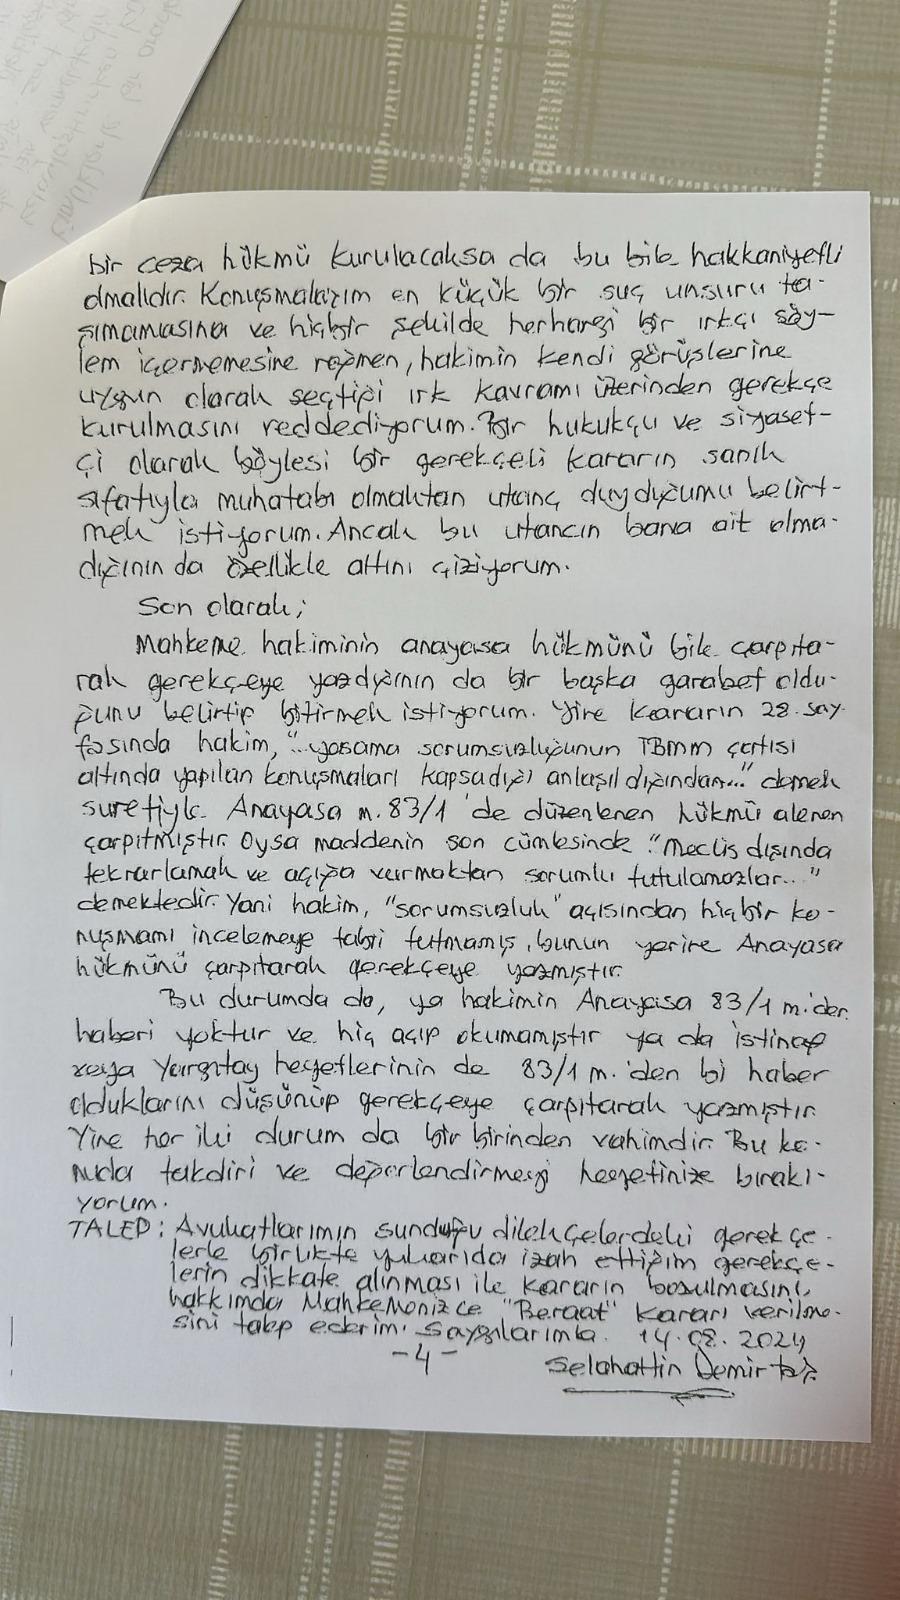 bir ceza hükmü kurulacaksa da bu bile hakkaniyetli
olmalıdır. Konuşmalarım en küçük bir suç unsuru ta-
şımamasına ve hiçbir şekilde herhangi bir ırkçı söy-
lem içermemesine rağmen, hakimin kendi görüşlerine
uygun olarak seçtiği ırk kavramı üzerinden gerekçe
kurulmasını reddediyorum. Bir hukukçu ve siyaset-
çi olarak böylesi bir gerekçeli kararın sanık
sıfatıyla muhatabı olmaktan utanç duyduğumu belirt-
mek istiyorum. Ancak bu utancın bana ait olma-
dığının da özellikle altını çiziyorum.
Son olarak;
Mahkeme hakiminin anayasa hükmünü bile çarpıta-
rak gerekçeye yazdığının da bir başka garabet oldu-
ğunu belirtip bitirmek istiyorum. Yine kararın 28. say-
fasında hakim, "...yasama sorumsuzluğunun TBMM çatısı
altında yapılan konuşmaları kapsadığı anlaşıldığından..." demek
suretiyle Anayasa m. 83/1 'de düzenlenen hükmü alenen
çarpıtmıştır. Oysa maddenin son cümlesinde "Meclis dışında
tekrarlamak ve açığa vurmaktan sorumlu tutulamazlar..."
demektedir. Yani hakim, "sorumsuzluk" açısından hiçbir ko-
nuşmamı incelemeye tabi tutmamış, bunun yerine Anayasa
hükmünü çarpıtarak gerekçeye yazmıştır.
Bu durumda da, ya hakimin Anayasa 83/1 m.'den
haberi yoktur ve hiç açıp okumamıştır ya da istinaf
veya Yargıtay heyetlerinin de 83/1 m.'den bi haber
olduklarını düşünüp gerekçeye çarpıtarak yazmıştır.
Yine her iki durum da bir birinden vahimdir. Bu ko-
nuda takdiri ve değerlendirmeyi heyetinize bırakı-
yorum.
TALEP: Avukatlarımın sunduğu dilekçelerdeki gerekçe-
lerle birlikte yukarıda izah ettiğim gerekçe-
lerin dikkate alınması ile kararın bozulmasını,
hakkımda Mahkemenizce "Beraat" kararı verilme-
sini talep ederim. Saygılarımla. 14.08.2024
-4- Selahattin Demirtaş